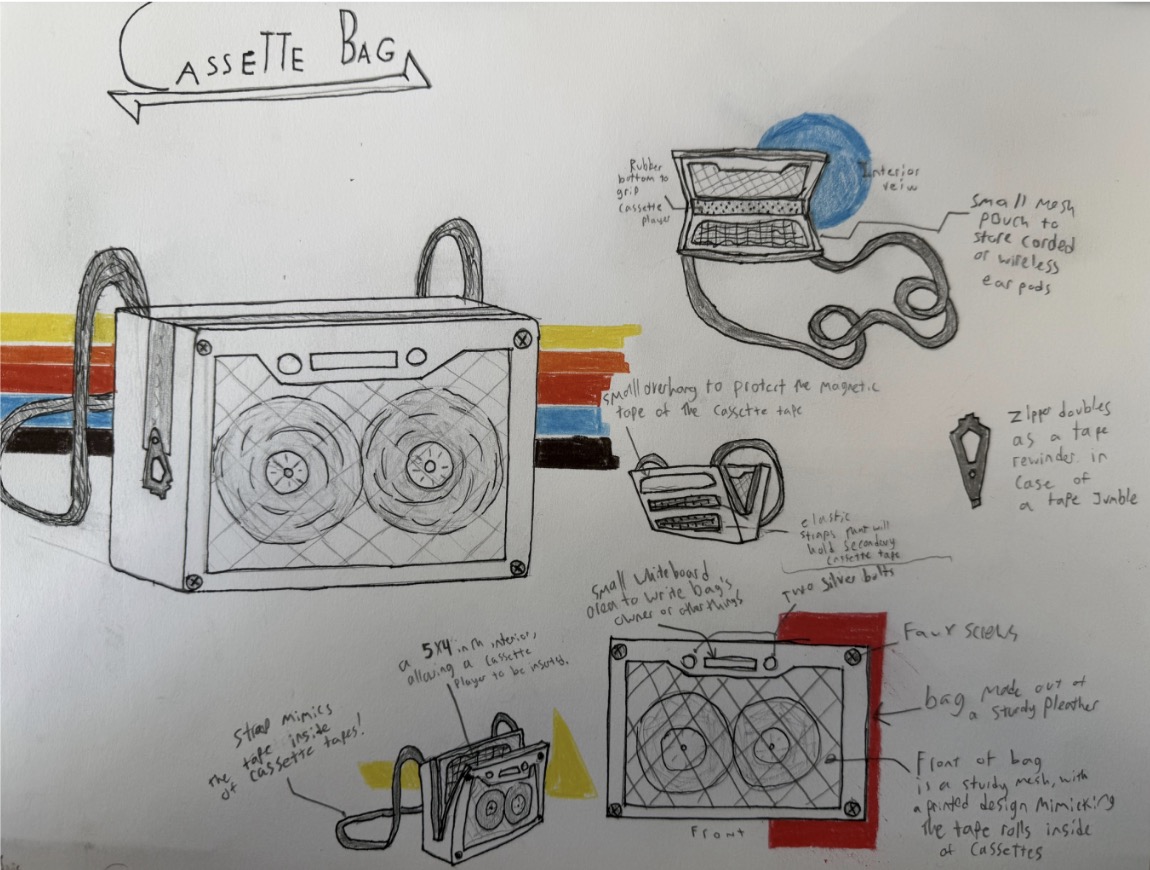 CASSETTE BAG
Rubber
bottom to
grip
cassette
player
Interior
veiw
Small Mesh
pouch to
store corded
or wireless
ear pods
small overhang to protect the magnetic
tape of the cassette tape
Zipper doubles
as a tape
rewinder in
case of
a tape Jumble
elastic
straps that will
hold secondary
cassette tape
Two silver bolts
small whiteboard
area to write bag's
owner or other things
Faux screws
bag made out of
a sturdy pleather
Front of bag
is a sturdy mesh, with
a printed design mimicking
the tape rolls inside
of cassettes
Front
a 5x4 inch interior,
allowing a cassette
player to be inserted.
Strap mimics
the tape inside
of cassette tapes!